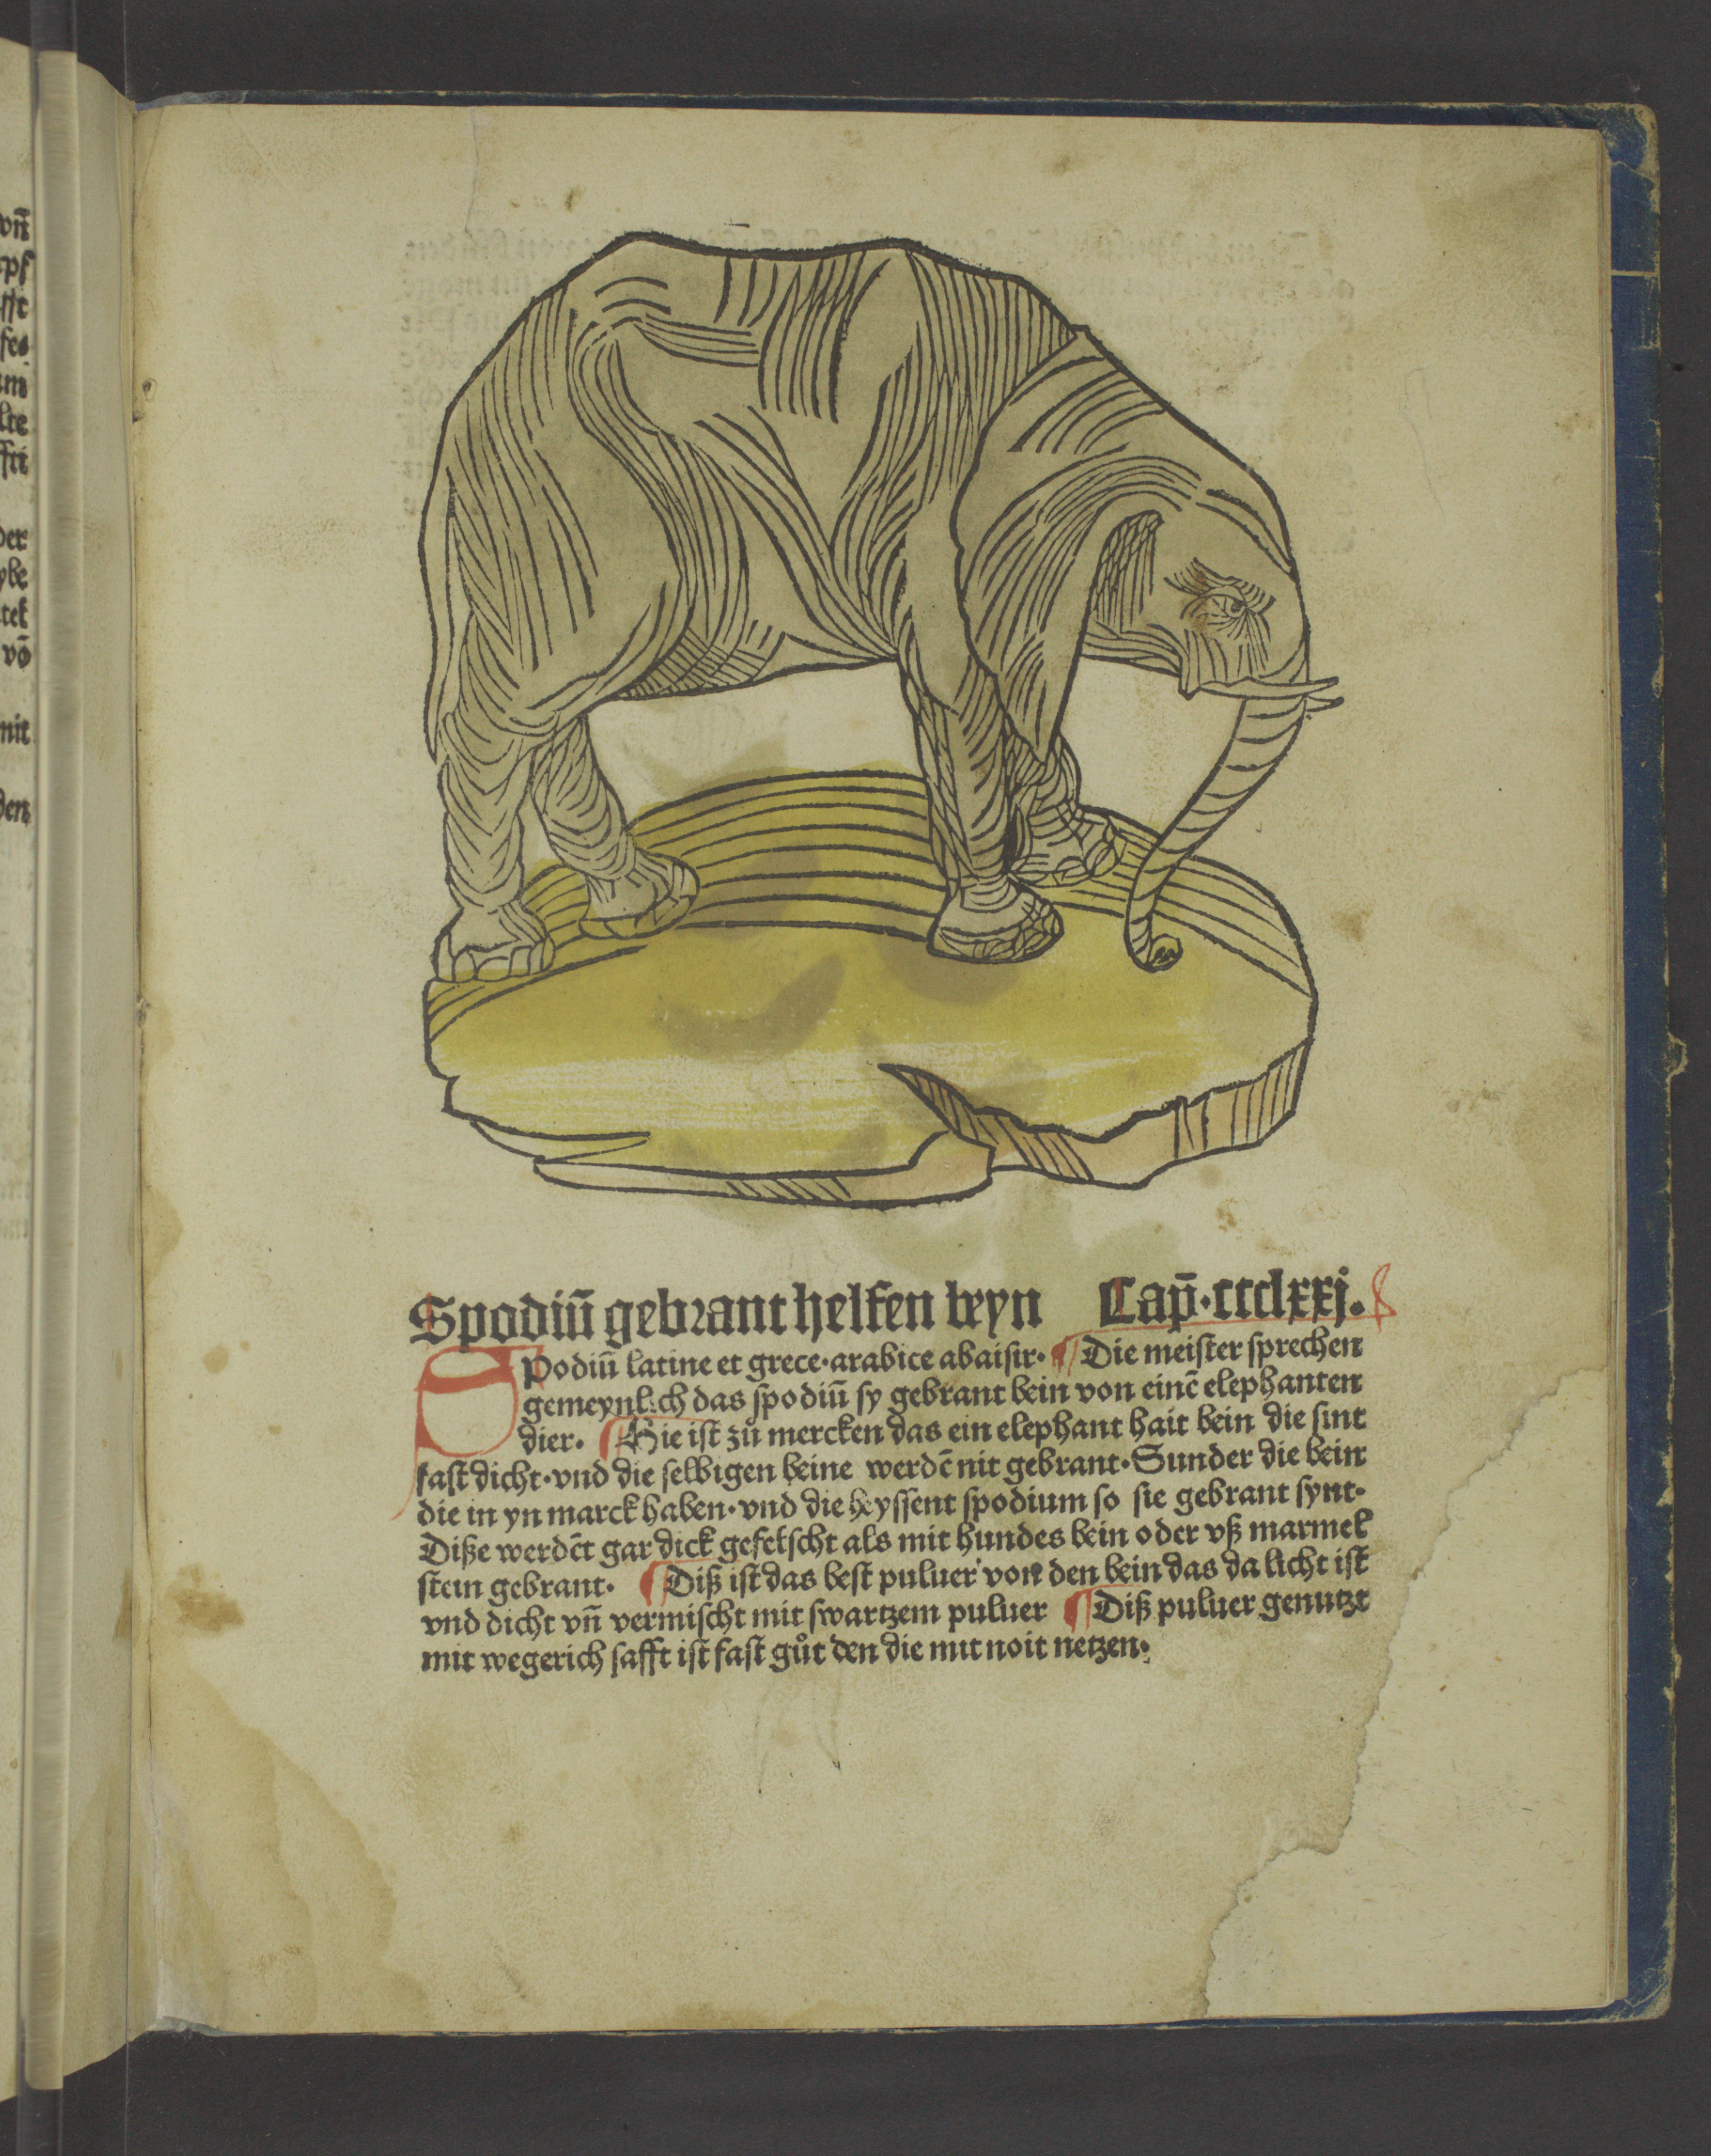 vn̄
rpf
fft
fes
am
lte
ffti
der
ybe
tek
vō
mit
den
Spodiū gebrant helfen beyn Cap̄·ccclxxj.
SPodiū latine et grece·arabice abaisir· Die meister sprechen
gemeynlich das spodiū sy gebrant bein von einē elephanten
dier. Hie ist zů mercken das ein elephant hait bein die sint
fast dicht·vnd die selbigen beine werdē nit gebrant·Sunder die bein
die in yn marck haben·vnd die heyssent spodium so sie gebrant synt·
Diße werdēt gar dick gefelscht als mit hundes bein oder vß marmel
stein gebrant· Diß ist das best puluer von den bein das da licht ist
vnd dicht vn̄ vermischt mit swartzem puluer Diß puluer genutzt
mit wegerich safft ist fast gůt den die mit noit netzen·